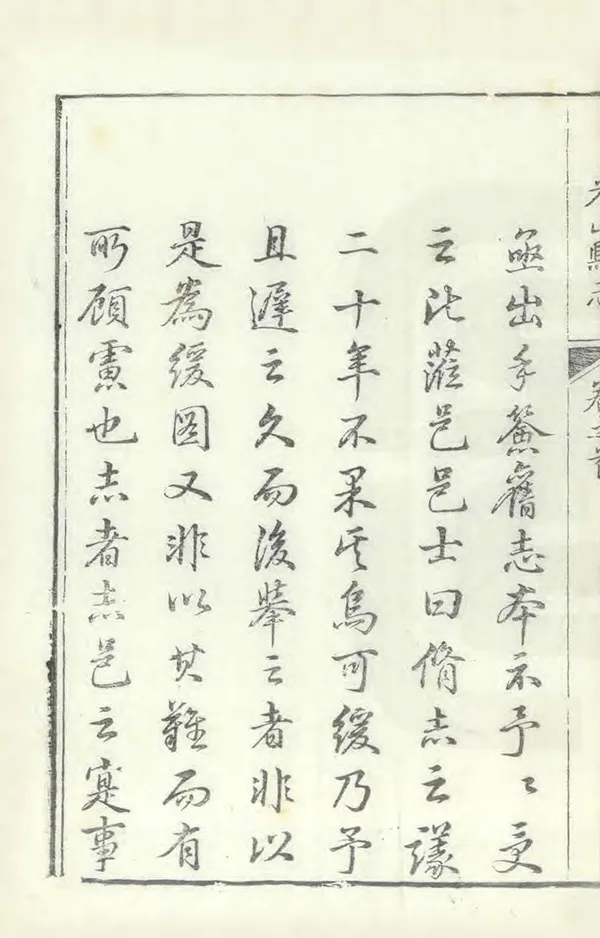 亟出手簽舊志本示予〻更
之比蒞邑邑士曰脩志之議
二十年不果矣烏可緩乃予
且遲之久而後舉之者非以
是為緩圖又非以其難而有
所顧慮也志者志邑之寔事